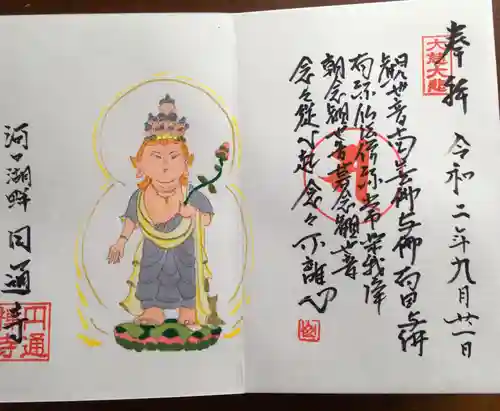 奉拝
令和二年九月廿一日
大慈大悲
観世音南無佛与佛有因与佛
有縁佛法僧縁常楽我淨
朝念観世音暮念観世音
念々従心起念々不離心
河口湖畔
円通寺
円通
禅寺